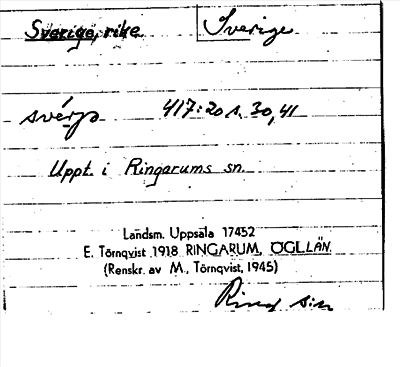 Sverige, rike Sverige
417:20 s. 30, 41
Uppt. i Ringarums sn.
Landsm. Uppsala 17452
E. Törnqvist 1918 RINGARUM, ÖGL.LÄN.
(Renskr. av M. Törnqvist, 1945)